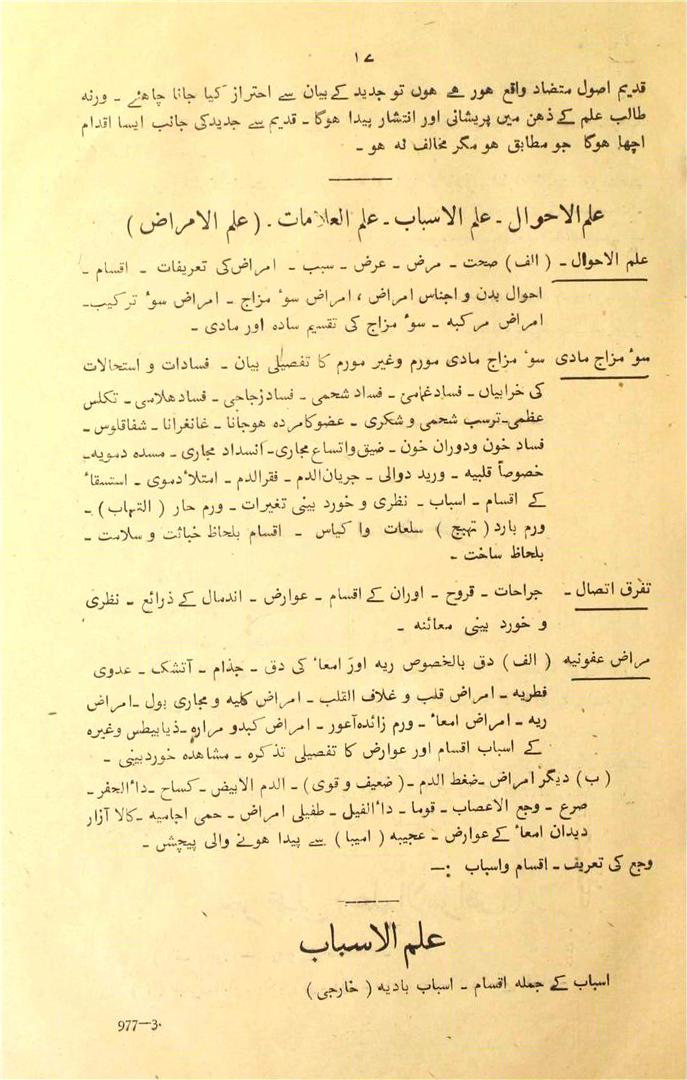 ۱۷
قدیم اصول متضاد واقع ہور ہے ہوں تو جدید کے بیان سے احتراز کیا جانا چاہئے ۔ ورنہ
طالب علم کے ذہن میں پریشانی اور انتشار پیدا ہوگا ۔ قدیم سے جدید کی جانب ایسا اقدام
اچھا ہوگا جو مطابق ہو مگر مخالف نہ ہو ۔
علم الاحوال ۔ علم الاسباب ۔ علم العلامات ۔ ( علم الامراض )
علم الاحوال ۔ ( الف ) صحت ۔ مرض ۔ عرض ۔ سبب ۔ امراض کی تعریفات ۔ اقسام ۔
احوال بدن و اجناس امراض ، امراض سوٴ مزاج ۔ امراض سوٴ ترکیب ۔
امراض مرکبہ ۔ سوٴ مزاج کی تقسیم سادہ اور مادی ۔
سوٴ مزاج مادی سوٴ مزاج مادی مورم وغیر مورم کا تفصیلی بیان ۔ فسادات و استحالات
کی خرابیاں ۔ فساد غمامی ۔ فساد شحمی ۔ فساد زجاجی ۔ فساد ہلامی ۔ تکلس
عظمی ۔ ترسب شحمی و شکری ۔ عضو کا مردہ ہوجانا ۔ غانغرانا ۔ شفاقلوس ۔
فساد خون و دوران خون ۔ ضیق و اتساع مجاری ۔ انسداد مجاری ۔ مسدہ دمویہ ۔
خصوصاً قلبیہ ۔ ورید دوالی ۔ جریان الدم ۔ فقر الدم ۔ امتلاٴ دموی ۔ استسقاٴ
کے اقسام ۔ اسباب ۔ نظری و خورد بینی تغیرات ۔ ورم حار ( التہاب ) ۔
ورم بارد ( تہیج ) سلعات وا کیاس ۔ اقسام بلحاظ خباثت و سلامت ۔
بلحاظ ساخت ۔
تفرق اتصال ۔ جراحات ۔ قروح ۔ اوران کے اقسام ۔ عوارض ۔ اندمال کے ذرائع ۔ نظری
و خورد بینی معائنہ ۔
مراض عفونیہ ( الف ) دق بالخصوص ریہ اور امعاٴ کی دق ۔ جذام ۔ آتشک ۔ عدوی
فطریہ ۔ امراض قلب و غلاف القلب ۔ امراض کلیہ و مجاری بول ۔ امراض
ریہ ۔ امراض امعاٴ ۔ ورم زائدہ آعور ۔ امراض کبد و مرارہ ۔ ذیابیطس وغیرہ
کے اسباب اقسام اور عوارض کا تفصیلی تذکرہ ۔ مشاہدہ خوردبینی ۔
( ب ) دیگر امراض ۔ ضغط الدم ۔ ( ضعیف و قوی ) ۔ الدم الابیض ۔ کساح ۔ داٴ الحفر ۔
صرع ۔ وجع الاعصاب ۔ قوما ۔ داٴ الفیل ۔ طفیلی امراض ۔ حمی اجامیہ ۔ کالا آزار
دیدان امعاٴ کے عوارض ۔ عجیبہ ( امیبا ) سے پیدا ہونے والی پیچش ۔
وجع کی تعریف ۔ اقسام واسباب :—
علم الاسباب
اسباب کے جملہ اقسام ۔ اسباب بادیہ ( خارجی )
977—3.